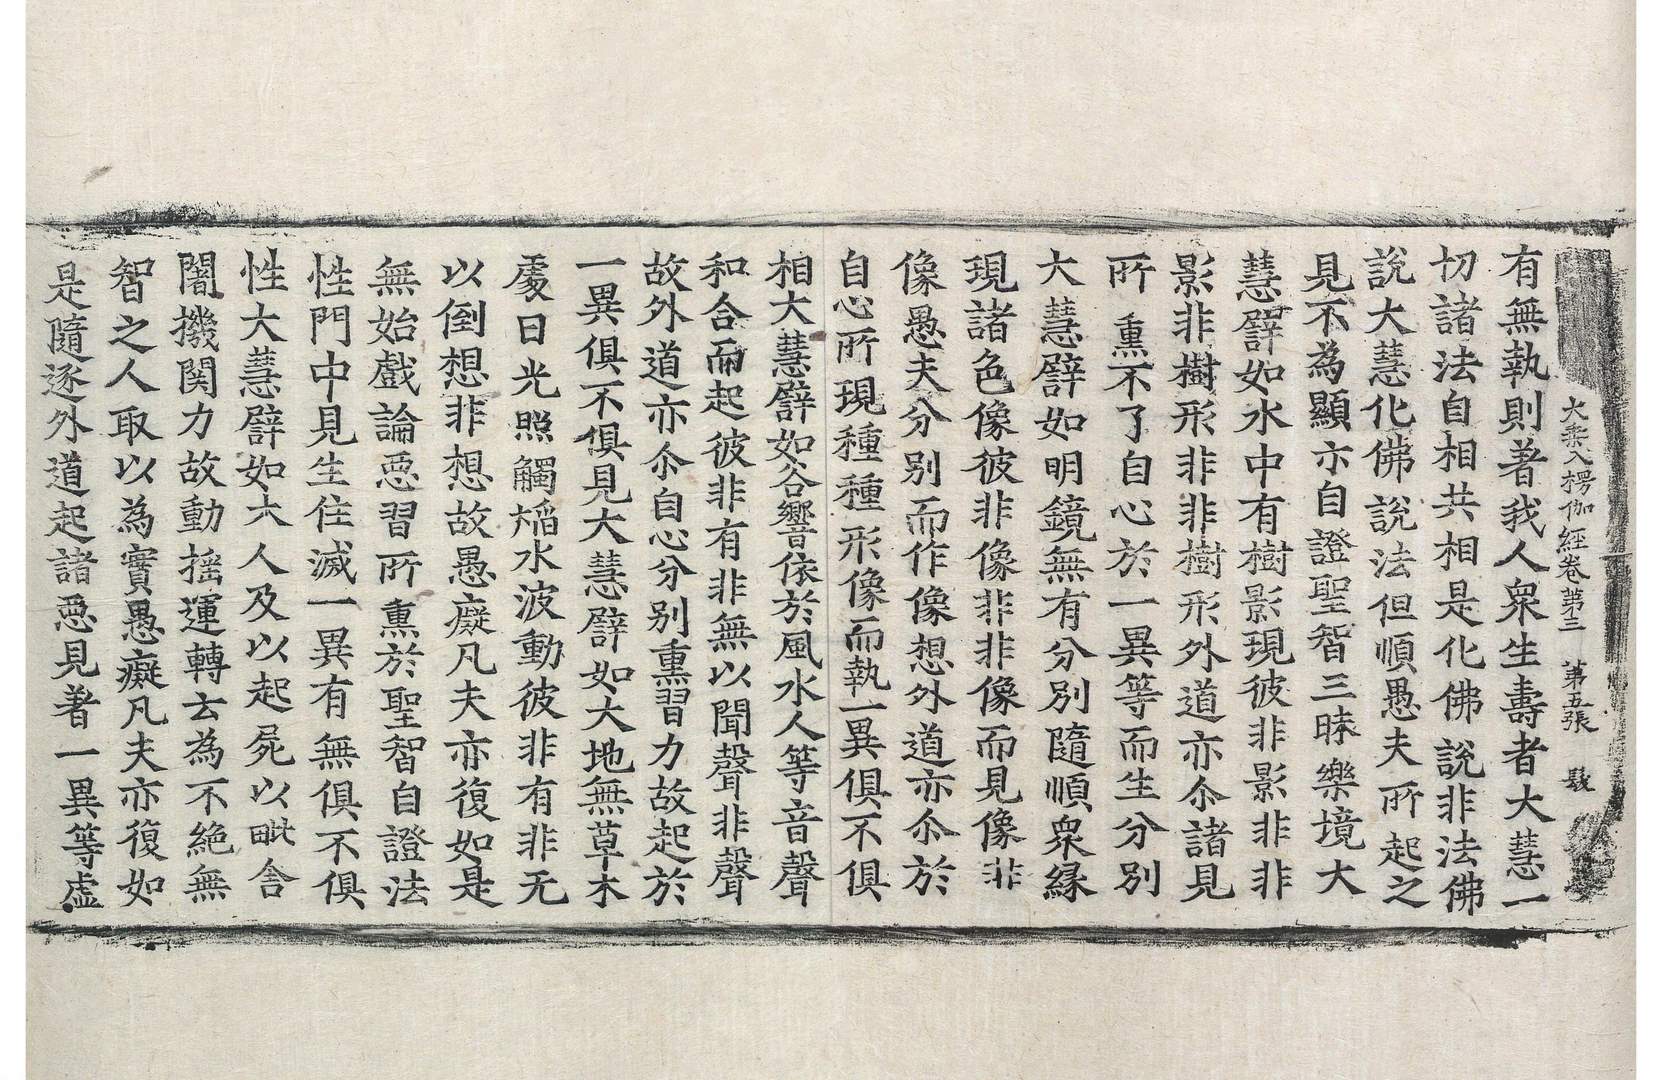 大乘入楞伽經卷第三 第五張
有無執則著我人衆生壽者大慧一
切諸法自相共相是化佛說非法佛
說大慧化佛說法但順愚夫所起之
見不為顯示自證聖智三昧樂境大
慧譬如水中有樹影現彼非影非非
影非樹形非非樹形外道亦尒諸見
所熏不了自心於一異等而生分別
大慧譬如明鏡無有分別隨順衆緣
現諸色像彼非像非非像而見像非
像愚夫分別而作像想外道亦尒於
自心所現種種形像而執一異俱不俱
相大慧譬如谷響依於風水人等音聲
和合而起彼非有非無以聞聲非聲
故外道亦尒自心分別熏習力故起於
一異俱不俱見大慧譬如大地無草木
處日光照觸熖水波動彼非有非无
以倒想非想故愚癡凡夫亦復如是
無始戲論惡習所熏於聖智自證法
性門中見生住滅一異有無俱不俱
性大慧譬如木人及以起屍以毗舍
闍機関力故動摇運轉去為不絕無
智之人取以為實愚癡凡夫亦復如
是隨逐外道起諸惡見著一異等虛